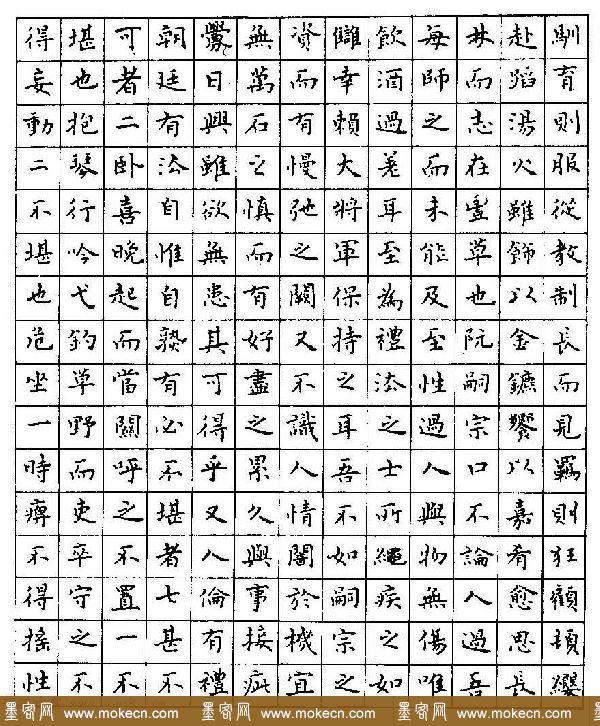 馴育則服從教制長而見羈則狂顧頓纓
赴蹈湯火雖飾以金鑣饗以嘉肴愈思長
林而志在豐草也阮嗣宗口不論人過吾
每師之而未能及至性過人與物無傷唯
飲酒過差耳至為禮法之士所繩疾之如
讎幸賴大將軍保持之耳吾不如嗣宗之
資而有慢弛之闕又不識人情闇於機宜
無萬石之慎而有好盡之累久與事接疵
釁日興雖欲無患其可得乎又人倫有禮
朝廷有法自惟自熟有必不堪者七甚不
可者二臥喜晚起而當關呼之不置一不
堪也抱琴行吟弋釣草野而吏卒守之不
得妄動二不堪也危坐一時痹不得搖性
墨客网 www.mokecn.com 墨客网 www.mokecn.com 墨客网 www.mokecn.com